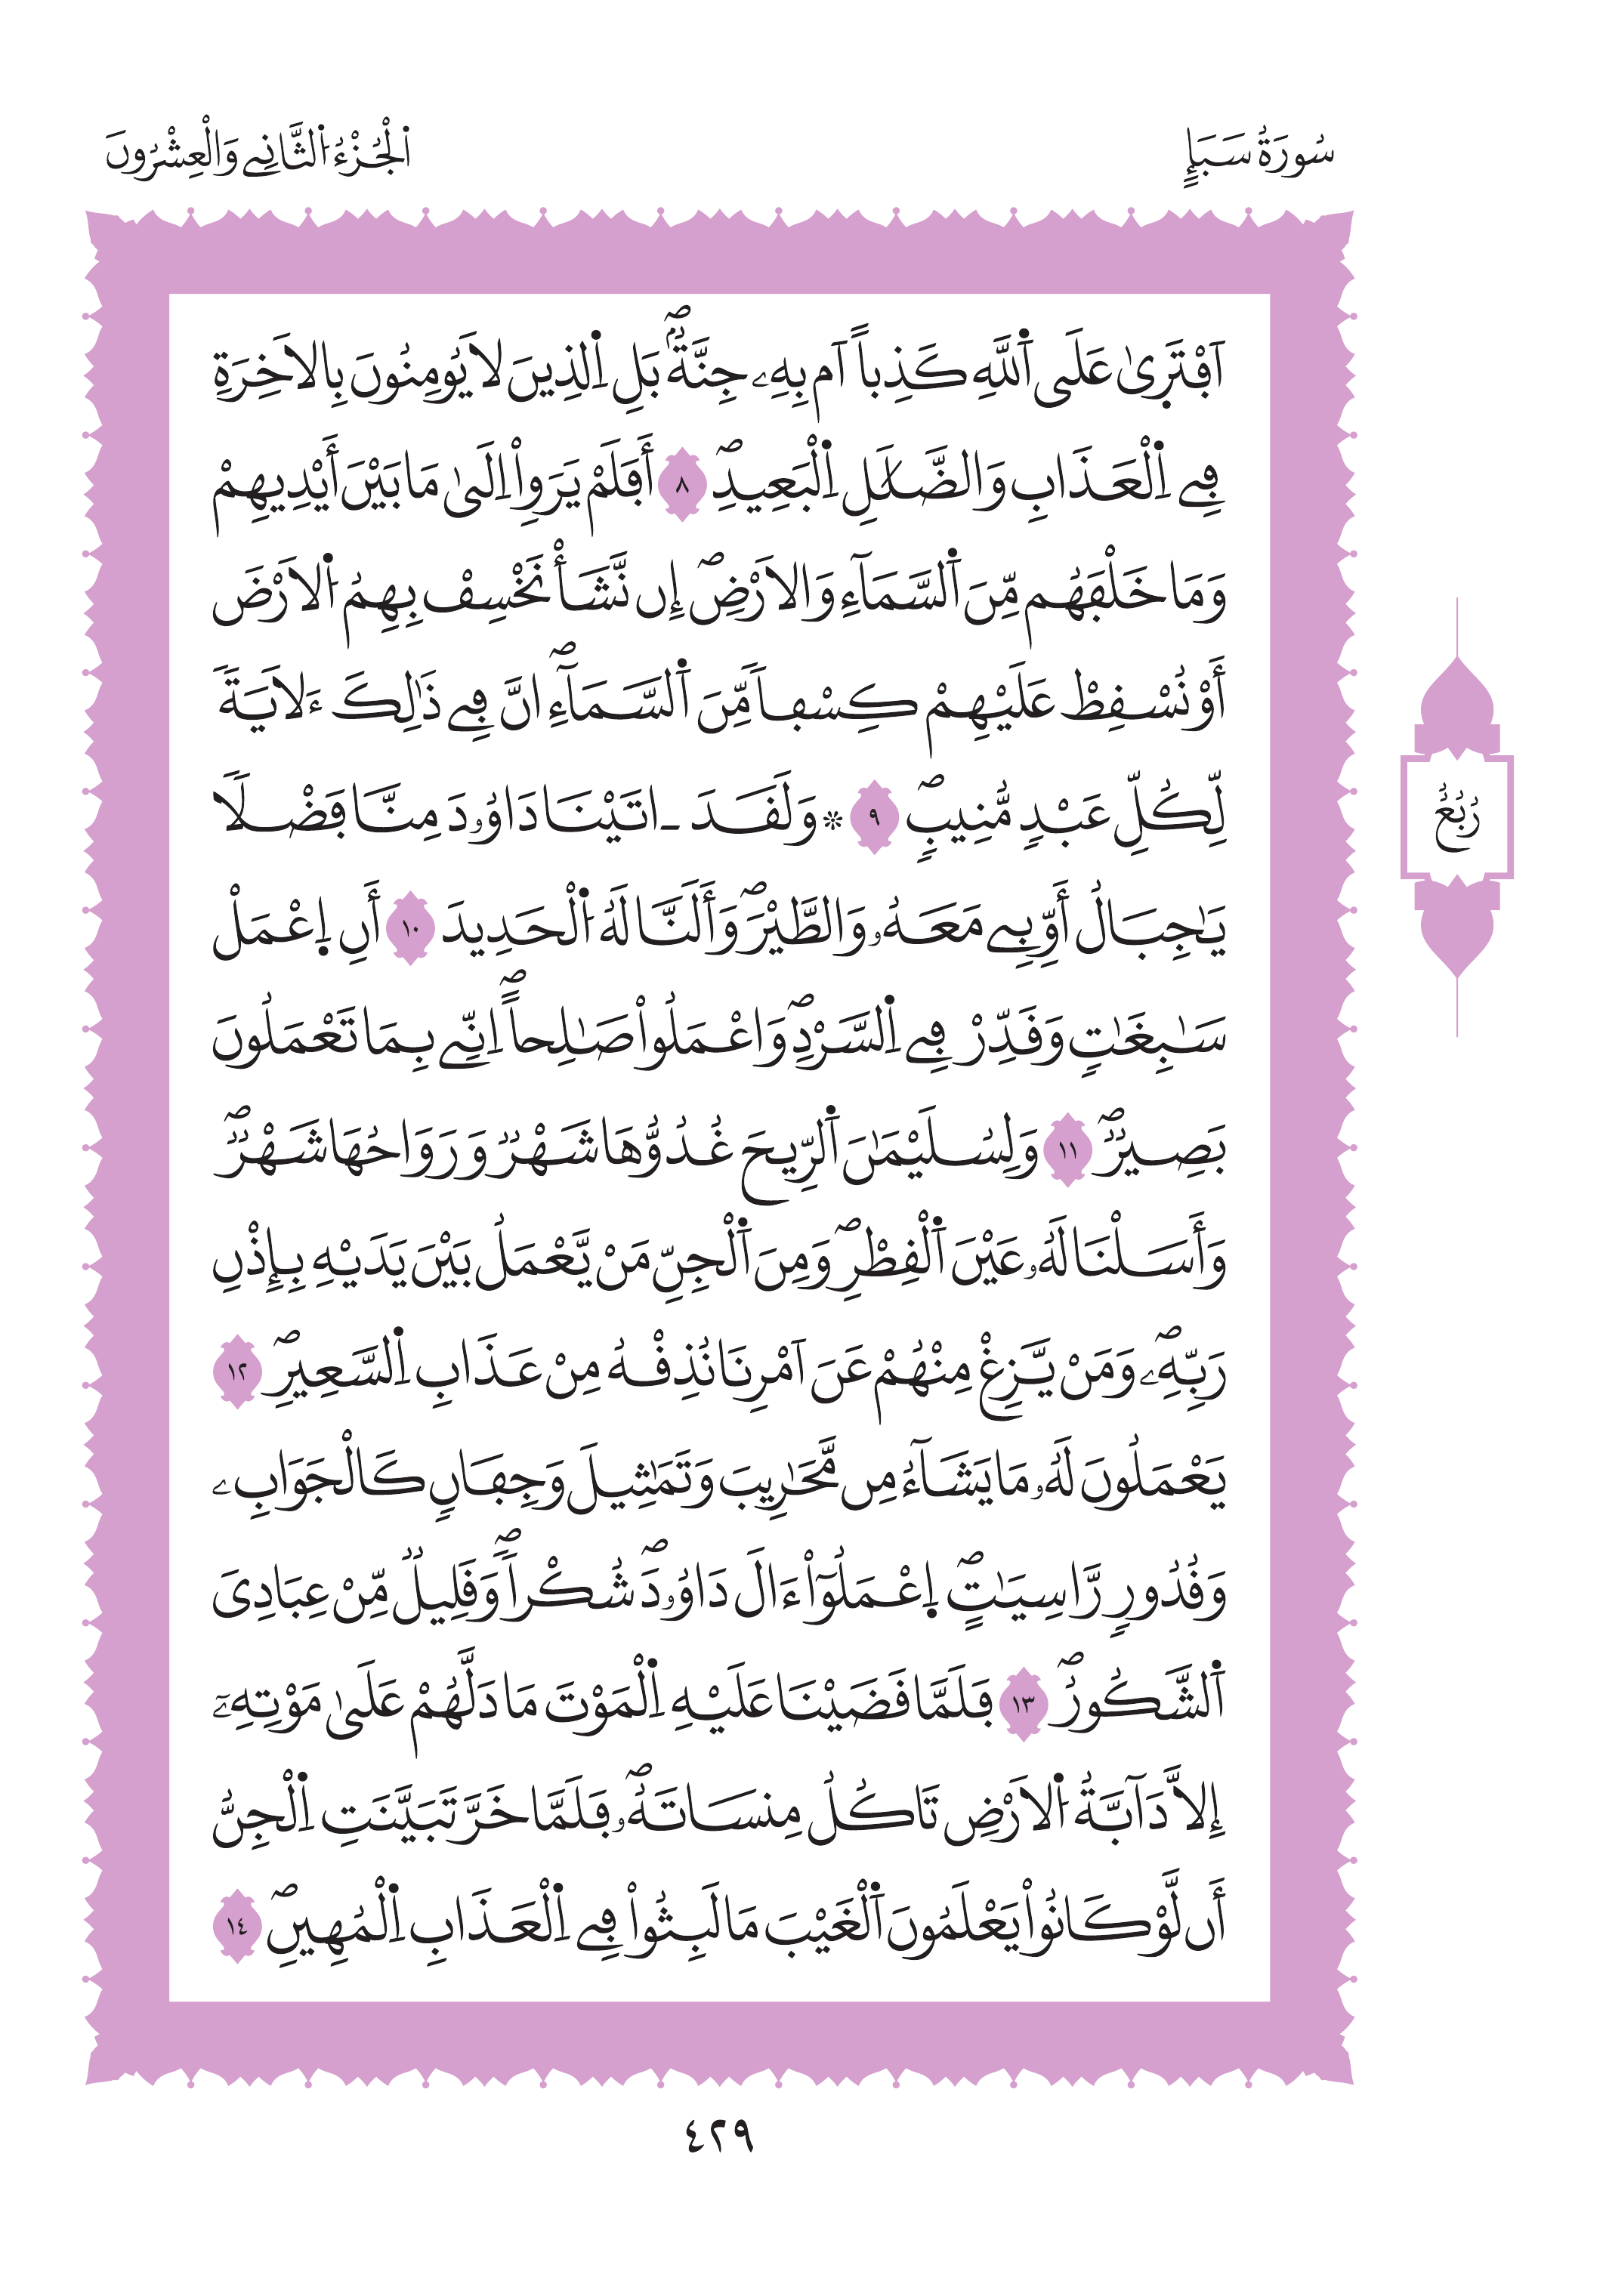 سُورَةُ سَبَإٍ
اَ۬لْجُزْءُ اُ۬لثَّانِے وَالْعِشْرُونَ
اَ۬فْتَر۪ىٰ عَلَى اَ۬للَّهِ كَذِباً اَم بِهِۦ جِنَّةُۢۖ بَلِ اِ۬لذِينَ لَا يُومِنُونَ بِالَاخِرَةِ
فِے اِ۬لْعَذَابِ وَالضَّلَٰلِ اِ۬لْبَعِيدِۖ ٨ أَفَلَمْ يَرَوِاْ اِلَىٰ مَا بَيْنَ أَيْدِيهِمْ
وَمَا خَلْفَهُم مِّنَ اَ۬لسَّمَآءِ وَالَارْضِۖ إِن نَّشَأْ نَخْسِفْ بِهِمُ اُ۬لَارْضَ
أَوْ نُسْقِطْ عَلَيْهِمْ كِسْفاٗ مِّنَ اَ۬لسَّمَآءِۖ انَّ فِے ذَٰلِكَ ءَلَايَةٗ
لِّكُلِّ عَبْدٖ مُّنِيبٖۖ ٩ ۞ وَلَقَدَ ـ اتَيْنَا دَاوُۥدَ مِنَّا فَضْلاٗ
يَٰجِبَالُ أَوِّبِے مَعَهُۥ وَالطَّيْرَۖ وَأَلَنَّا لَهُ اُ۬لْحَدِيدَ ١٠ أَنِ اِ۪عْمَلْ
سَٰبِغَٰتٖ وَقَدِّرْ فِے اِ۬لسَّرْدِۖ وَاعْمَلُواْ صَٰلِحاًۖ اِنِّے بِمَا تَعْمَلُونَ
بَصِيرٞۖ ١١ وَلِسُلَيْمَٰنَ اَ۬لرِّيحَ غُدُوُّهَا شَهْرٞ وَرَوَاحُهَا شَهْرٞۖ
وَأَسَلْنَا لَهُۥ عَيْنَ اَ۬لْقِطْرِۖ وَمِنَ اَ۬لْجِنِّ مَنْ يَّعْمَلُ بَيْنَ يَدَيْهِ بِإِذْنِ
رَبِّهِۦۖ وَمَنْ يَّزِغْ مِنْهُمْ عَنَ اَمْرِنَا نُذِقْهُ مِنْ عَذَابِ اِ۬لسَّعِيرِۖ ١٢
يَعْمَلُونَ لَهُۥ مَا يَشَآءُ مِن مَّحَٰرِيبَ وَتَمَٰثِيلَ وَجِفَانٖ كَالْجَوَابِۦ
وَقُدُورٖ رَّاسِيَٰتٍۖ اِ۪عْمَلُوٓاْ ءَالَ دَاوُۥدَۖ شُكْراٗۖ وَقَلِيلٞ مِّنْ عِبَادِيَ
اَ۬لشَّكُورُۖ ١٣ فَلَمَّا قَضَيْنَا عَلَيْهِ اِ۬لْمَوْتَ مَا دَلَّهُمْ عَلَىٰ مَوْتِهِۦٓ
إِلَّا دَآبَّةُ اُ۬لَارْضِ تَاكُلُ مِنسَاتَهُۥۖ فَلَمَّا خَرَّ تَبَيَّنَتِ اِ۬لْجِنُّ
أَن لَّوْ كَانُواْ يَعْلَمُونَ اَ۬لْغَيْبَ مَا لَبِثُواْ فِے اِ۬لْعَذَابِ اِ۬لْمُهِينِۖ ١٤
رُبُعُ
٤٢٩